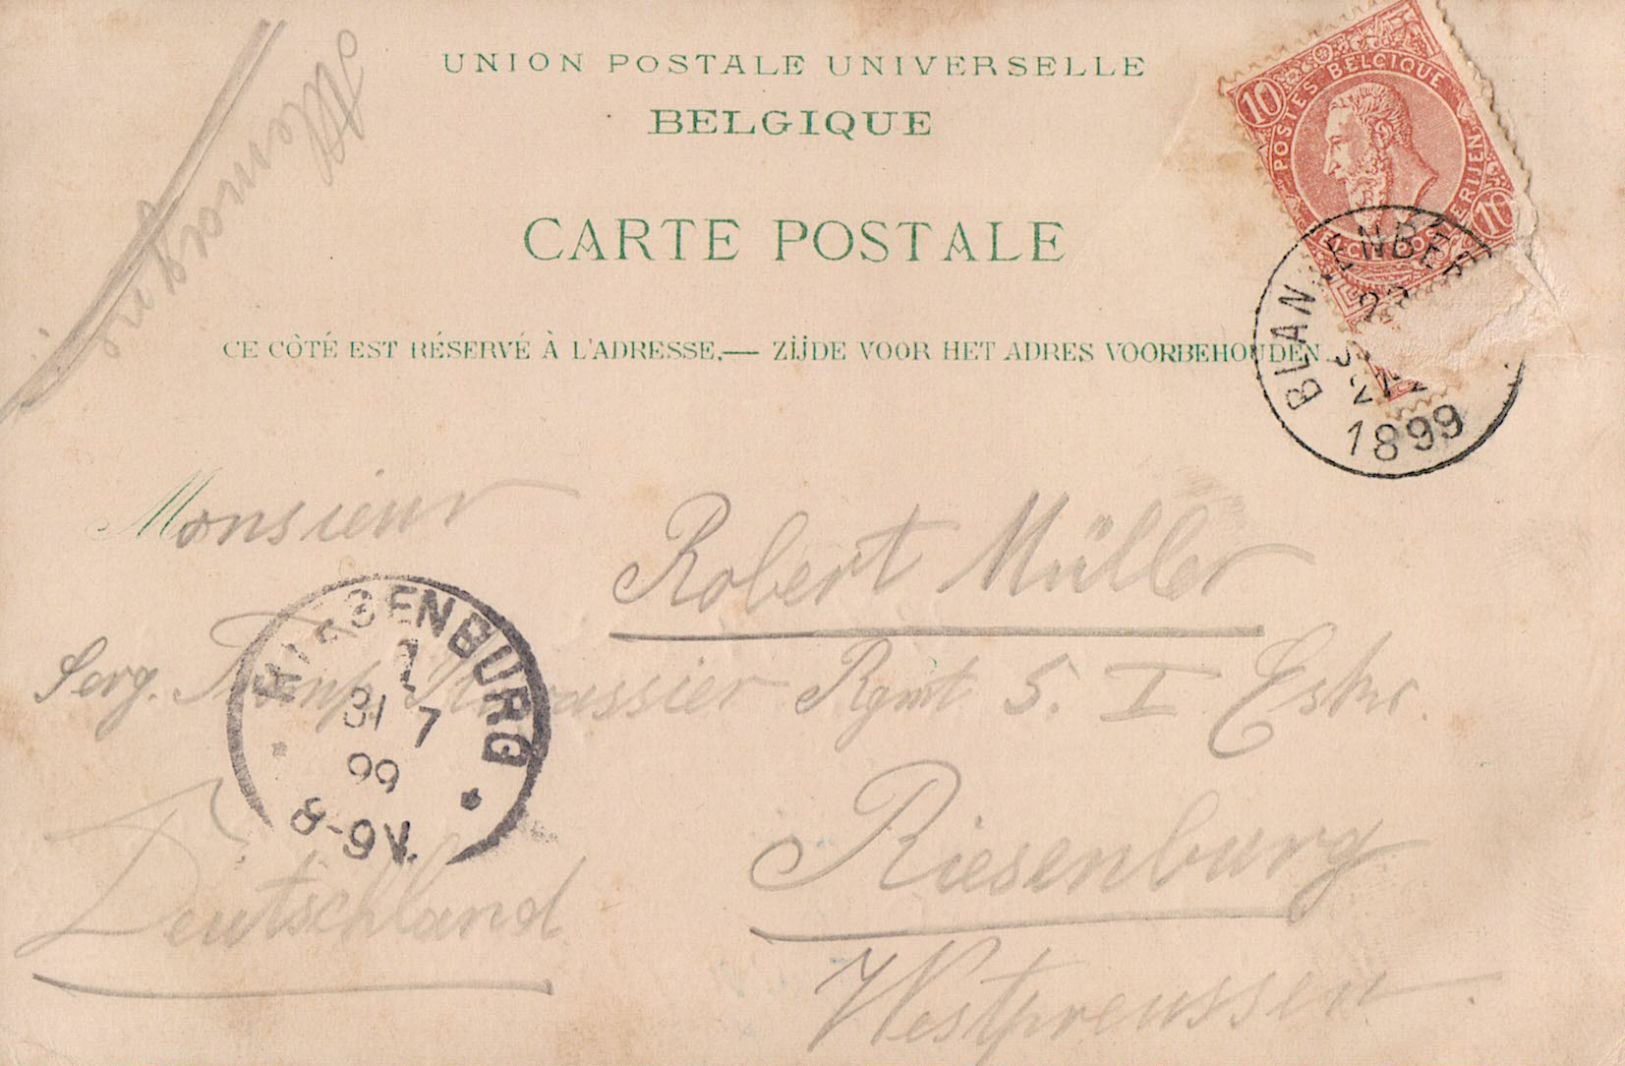 Allemagne
UNION POSTALE UNIVERSELLE
BELGIQUE
CARTE POSTALE
CE CÔTÉ EST RÉSERVÉ À L'ADRESSE.— ZIJDE VOOR HET ADRES VOORBEHOUDEN.
10 POSTES BELGIQUE
10
BLANKENBERGHE
1899
Monsieur
Robert Müller
Serg. Kürassier Rgmt 5. I Eskr.
Riesenburg
Westpreussen.
Deutschland
RIESENBURG
1
31 7
99
8-9V.